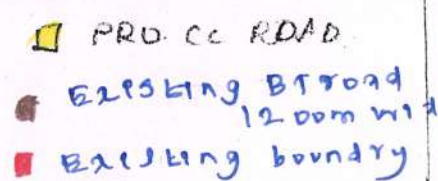 PRO. CC ROAD
Existing BT road
12.00m wid
Existing boundry